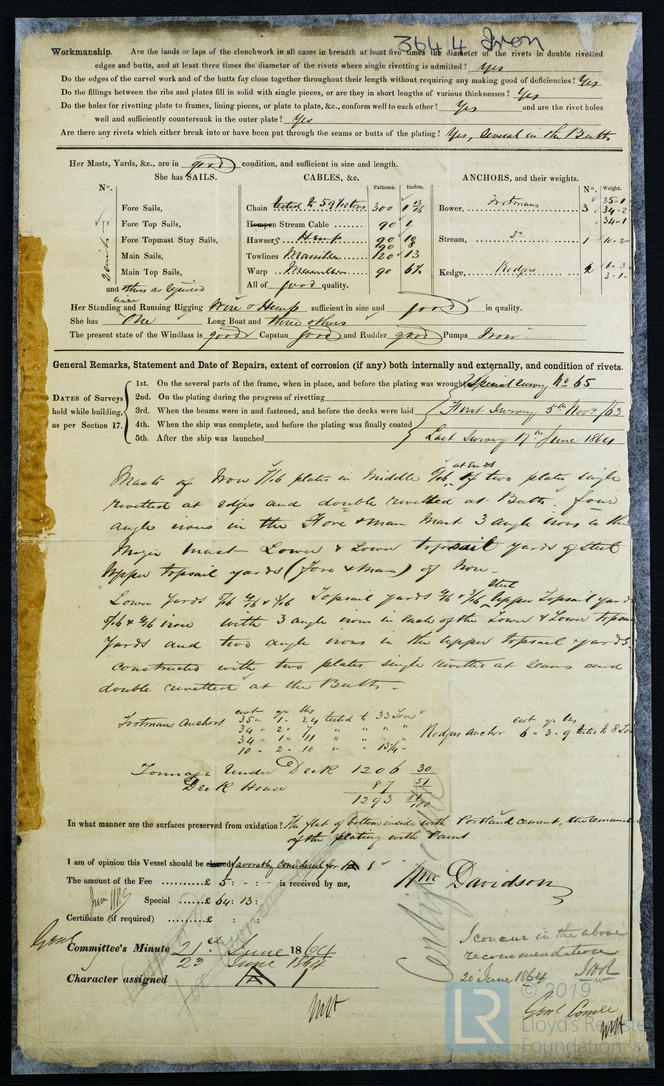 3644 Iron
Workmanship. Are the lands or laps of the clenchwork in all cases in breadth at least five times the diameter of the rivets in double rivetted
edges and butts, and at least three times the diameter of the rivets where single rivetting is admitted? Yes
Do the edges of the carvel work and of the butts fay close together throughout their length without requiring any making good of deficiencies? Yes
Do the fillings between the ribs and plates fill in solid with single pieces, or are they in short lengths of various thicknesses? Yes
Do the holes for rivetting plate to frames, lining pieces, or plate to plate, &c., conform well to each other? Yes and are the rivet holes
well and sufficiently countersunk in the outer plate? Yes
Are there any rivets which either break into or have been put through the seams or butts of the plating? Yes, several in the Butts
Her Masts, Yards, &c., are in good condition, and sufficient in size and length.
She has SAILS. CABLES, &c. ANCHORS, and their weights.
No. Fathoms. Inches. No. Weight.
Fore Sails, Chain tested to 300 1 Bower, Trotmans 3 35-1
34-2
Fore Top Sails, Hempen Stream Cable 90 1 34-1
Fore Topmast Stay Sails, Hawsers Hemp 90 Stream, do 1 10-2
Main Sails, Towlines Manilla 120 13
Main Top Sails, Warp 90 Kedge, Rodgers 2 6-3
3-1
and others as required All of good quality.
Her Standing and Running Rigging Wire & Hemp sufficient in size and good in quality.
She has One Long Boat and three others
The present state of the Windlass is good Capstan good and Rudder good Pumps Iron
General Remarks, Statement and Date of Repairs, extent of corrosion (if any) both internally and externally, and condition of rivets.
DATES of Surveys held while building, as per Section 17.
1st. On the several parts of the frame, when in place, and before the plating was wrought Special Survey No 65
2nd. On the plating during the progress of rivetting
3rd. When the beams were in and fastened, and before the decks were laid First Survey 5th Novr /63
4th. When the ship was complete, and before the plating was finally coated
5th. After the ship was launched Last Survey 17th June 1864
Masts of Iron 7/16 plates in middle 6/16 at ends of two plates single
rivetted at edges and double rivetted at Butts. four
angle irons in the Fore & Main Mast 3 angle irons in the
Mizen mast Lower & Lower topsail yards of Steel
Upper topsail yards (Fore & Main) of Iron.
Lower Yards Topsail yards Steel Upper Topsail yards
iron with 3 angle irons in each of the Lower & Lower topsail
Yards and two angle irons in the upper topsail yards
constructed with two plates single rivetted at seams and
double rivetted at the Butts.
cwt qr lbs
Trotmans Anchors 35 " 1 " 24 tested to 33 Tons
34 - 2 - 7 " " "
34 - 1 - 11 " " "
10 - 2 - 10 " "
cwt qr lbs
Rodgers anchor 6 - 3 - 9 tested to 8 Tons
Tonnage Under Deck 1206 30
Deck House 87 51
1293
In what manner are the surfaces preserved from oxidation? The flat of bottom inside with Portland cement, the remainder
of the plating with Paint
I am of opinion this Vessel should be classed favorably considered for A 1
The amount of the Fee ...........£ 5 : - : - is received by me, Wm Davidson
Special ......£ 64 : 13 :
Certificate (if required) ........£ : :
I concur in the above
recommendation
20 June 1864
Committee's Minute 21st June 1864
23 June 1864
Character assigned A 1
LR
© 2019
Lloyd's Register
Foundation